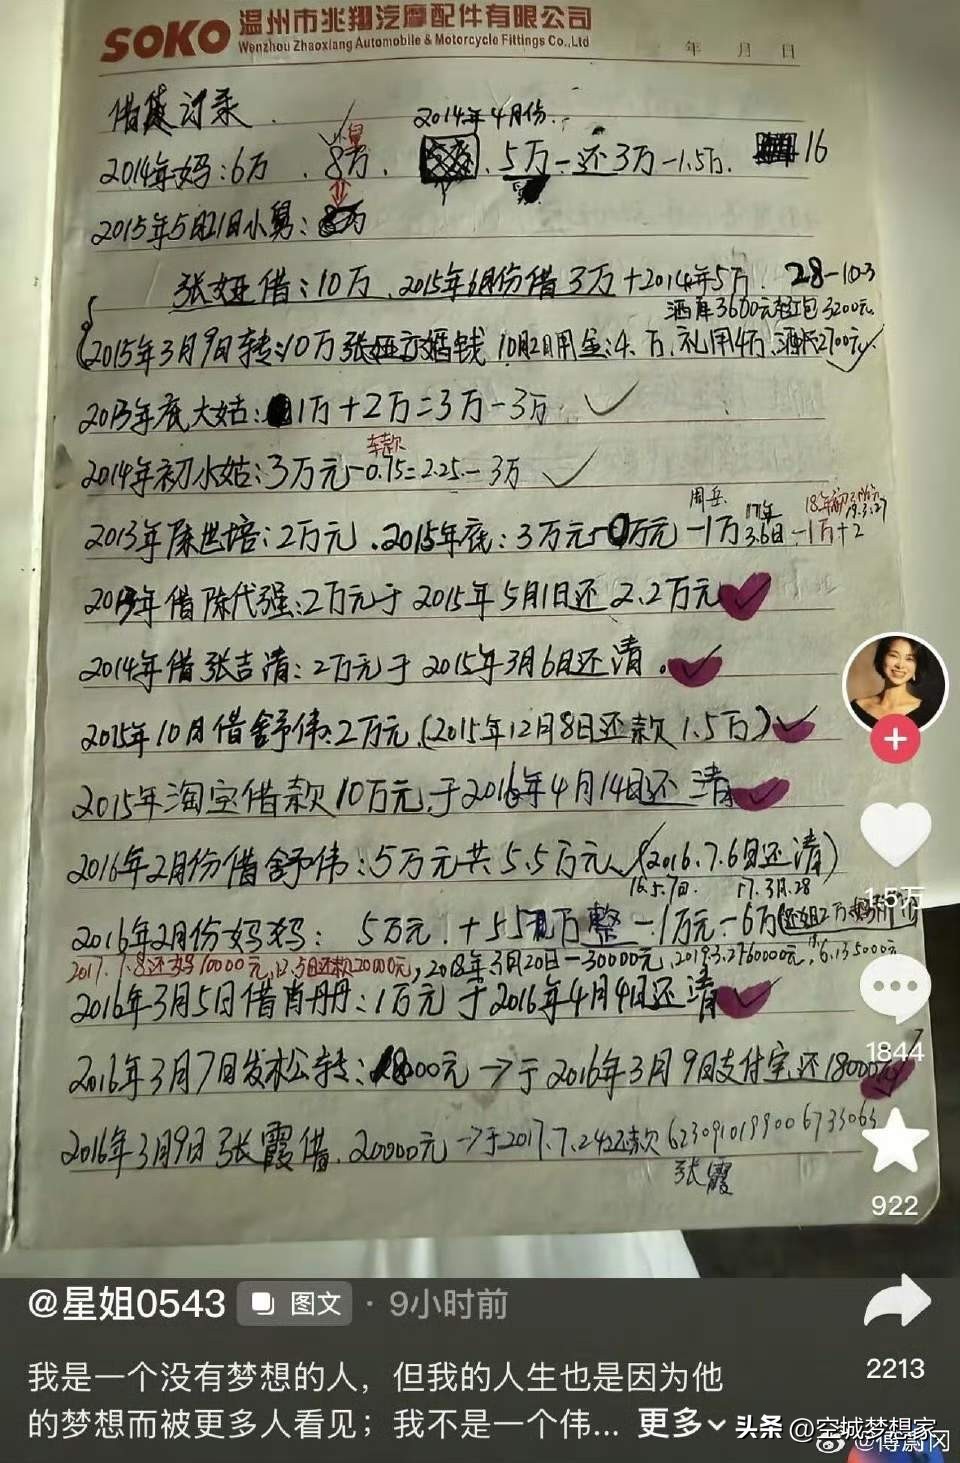 SOKO 温州市兆翔汽摩配件有限公司
Wenzhou Zhaoxiang Automobile & Motorcycle Fittings Co.,Ltd
年 月 日
借贷记录
2014年4月份
2014年妈:6万 8万 5万-还3万-1.5万 16
2015年5月21日小舅:
张娅借:10万 2015年6月份借3万+2014年5万 28-10.3
酒席3600元 红包3200元
2015年3月9日转:10万张娅 婚钱 10月2日用金:4万 礼用4万
2013年底大姑: 1万+2万=3万-3万
车款
2014年初小姑:3万元-0.75=2.25-3万
2013年陈世培:2万元 2015年底:3万元 万元-1万 17年3.6日-1万+2
借陈代强:2万元于2015年5月1日还2.2万元
2014年借张吉清:2万元于2015年3月6日还清
2015年10月借舒伟:2万元(2015年12月8日还款1.5万)
2015年淘宝借款10万元于2016年4月14日还清
2016年2月份借舒伟:5万元共5.5万元(2016.7.6日还清)
16.5.7日 17.3月.28
2016年2月份妈妈: 5万元 万整-1万元-6万
2017.7.8还妈10000元,12.5日还款20000元,2018年3月20日-30000元
2016年3月5日借肖丹丹:1万元于2016年4月4日还清
2016年3月7日发松转: →于2016年3月9日支付宝还18000元
2016年3月9日张霞借20000元→于2017.7.24还款
张霞
1.5万
1844
922
2213
@星姐0543 图文 · 9小时前
我是一个没有梦想的人，但我的人生也是因为他
的梦想而被更多人看见；我不是一个伟... 更多
头条 @空城梦想家
@傅蔚冈